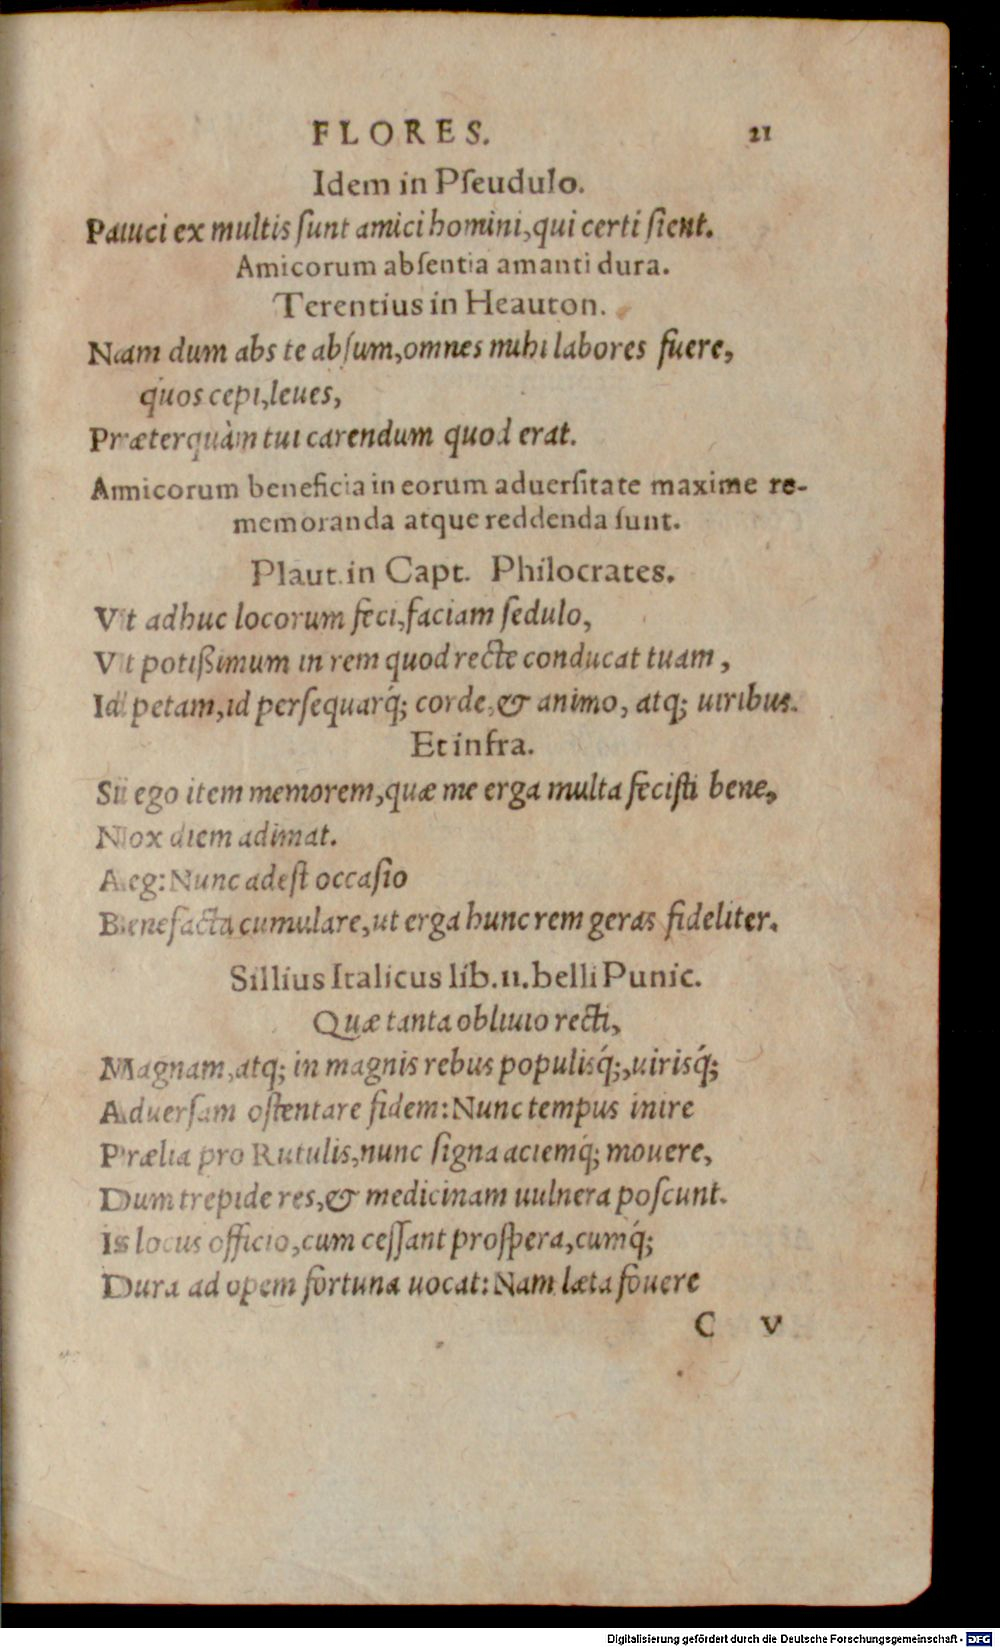 FLORES. 21
Idem in Pſeudulo.
Pauci ex multis ſunt amici homini, qui certi ſient.
Amicorum abſentia amanti dura.
Terentius in Heauton.
Nam dum abs te abſum, omnes mihi labores fuere,
quos cepi, leues,
Præterquàm tui carendum quod erat.
Amicorum beneficia in eorum aduerſitate maxime re-
memoranda atque reddenda ſunt.
Plaut. in Capt. Philocrates.
Vt adhuc locorum feci, faciam ſedulo,
Vt potißimum in rem quod recte conducat tuam,
Id petam, id perſequarq́; corde, & animo, atq; uiribus.
Et infra.
Si ego item memorem, quæ me erga multa feciſti bene,
Nox diem adimat.
Aeg: Nunc adeſt occaſio
Benefacta cumulare, ut erga hunc rem geras fideliter.
Sillius Italicus lib. 11. belli Punic.
Quæ tanta obliuio recti,
Magnam, atq; in magnis rebus populisq́;, uirisq́;
Aduerſam oſtentare fidem: Nunc tempus inire
Prælia pro Rutulis, nunc ſigna aciemq́; mouere,
Dum trepide res, & medicinam uulnera poſcunt.
Is locus officio, cum ceſſant proſpera, cumq́;
Dura ad opem fortuna uocat: Nam læta fouere
C v
Digitalisierung gefördert durch die Deutsche Forschungsgemeinschaft - DFG